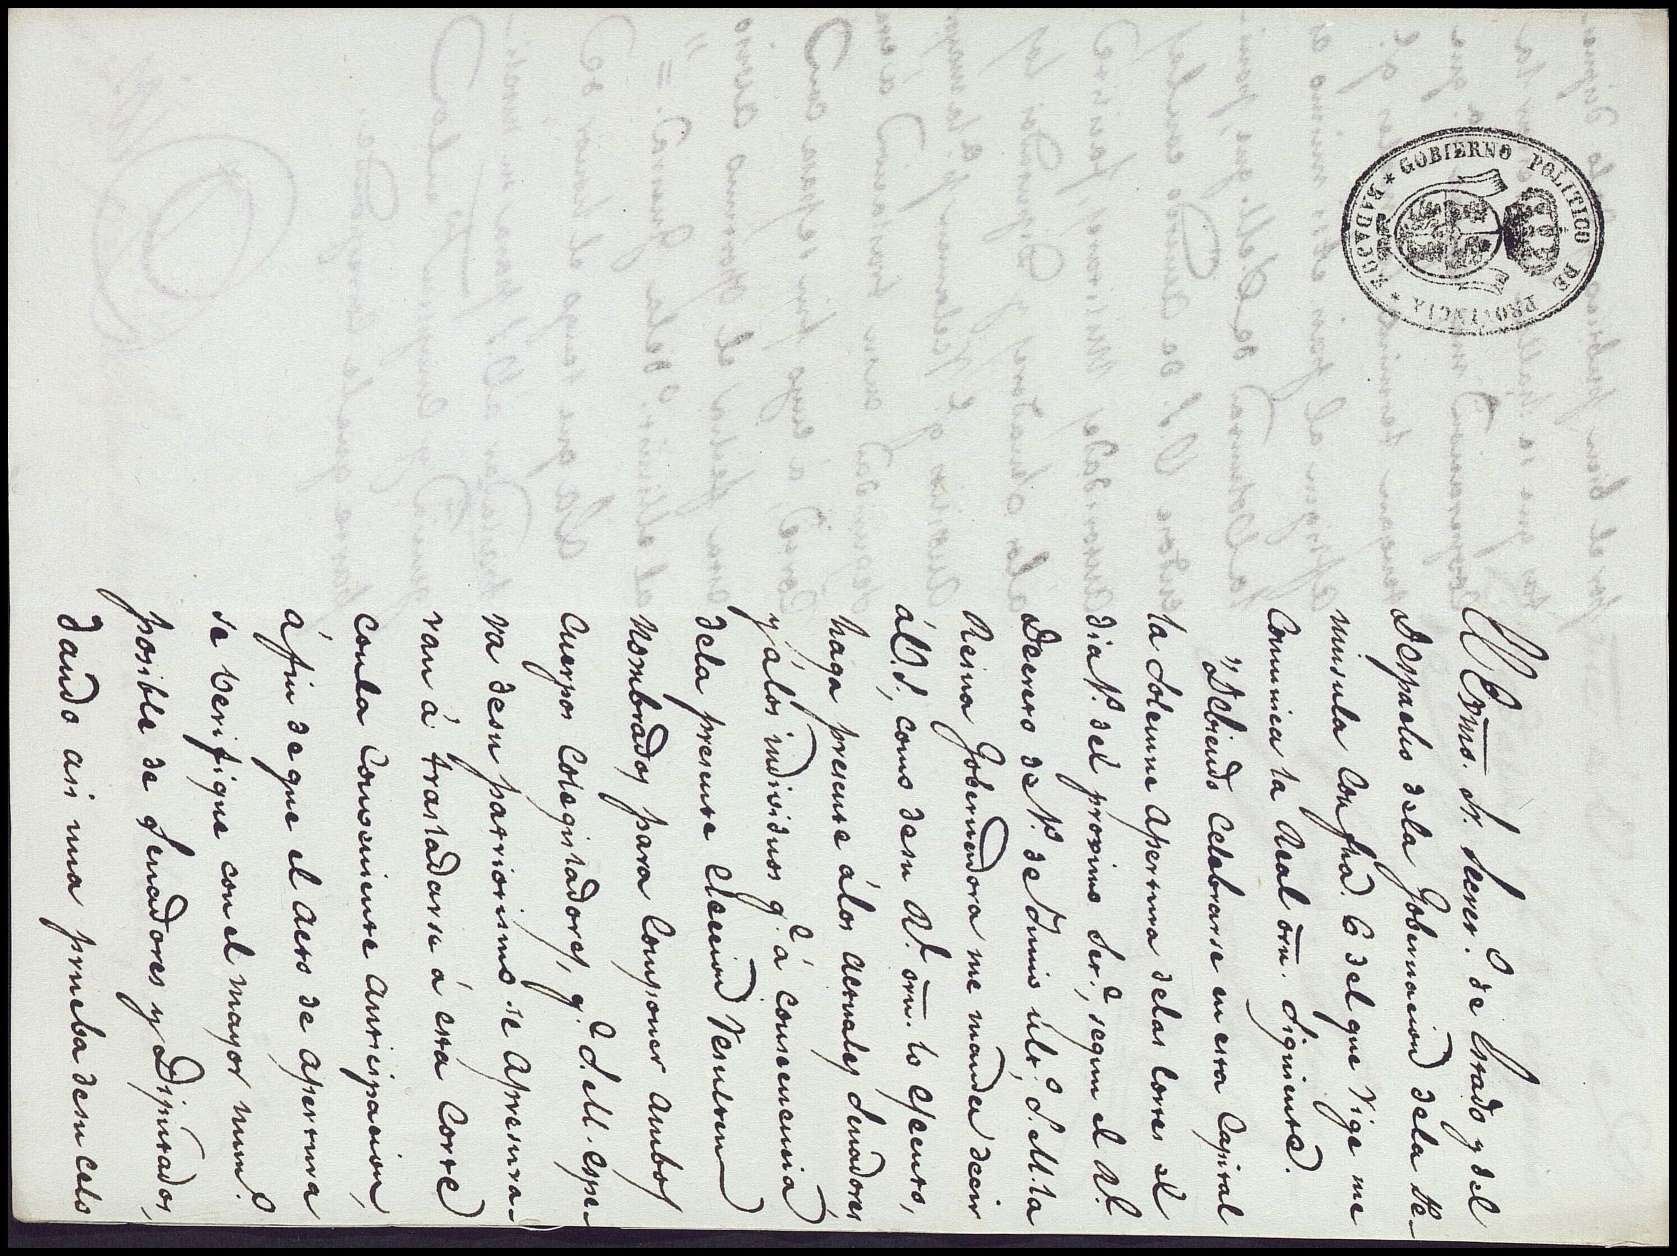 GOBIERNO POLITICO DE PROVINCIA * BADAJOZ *
El Exmo. Sr. Secret.o de Estado y del
Despacho dela Gobernacion dela Pe-
ninsula con fha. 6 del que rige me
comunica la Real orn. siguiente.
"Debiendo celebrarse en esta Capital
la solemne apertura delas Cortes el
dia 1.o del proximo Set.e, segun el Rl.
Decreto de 1.o de Junio ult.o, S. M. la
Reina Gobernadora me manda decir
á V.S., como desu Rl. orn. lo ejecuto,
haga presente álos actuales Senadores
y álos individuos q.e á consecuencia
dela presente eleccion resulten
nombrados para componer ambos
cuerpos colegisladores, q.e S. M. espe-
ra desu patriotismo se apresura-
ran á trasladarse á esta Corte
conla conveniente anticipacion,
á fin de que el acto de apertura
se verifique con el mayor num.o
posible de Senadores y Diputados,
dando asi una prueba desu celo